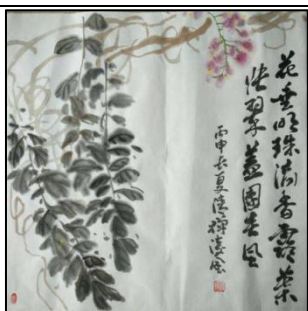 花垂明珠滴香露葉
張翠蓋團春風
丙申長夏